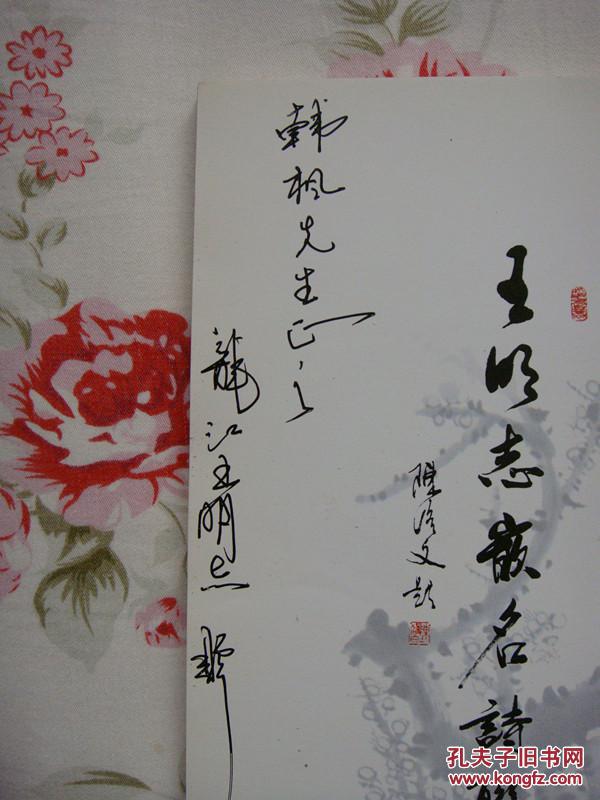 王明志嵌名詩聯
文題
韓枫先生正之
龍江王明志
孔夫子旧书网
www.kongfz.com